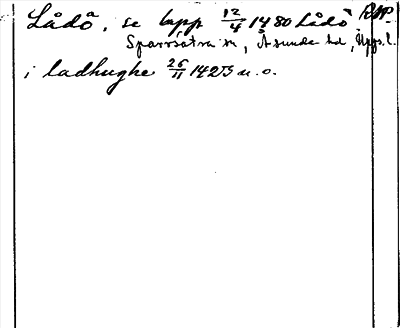 Lådö, se lapp 12/4 1480 Lådö RAP
Sparrsätra sn, Åsunda hd, Upps. l.
i ladhughe 25/11 1423 u. o.